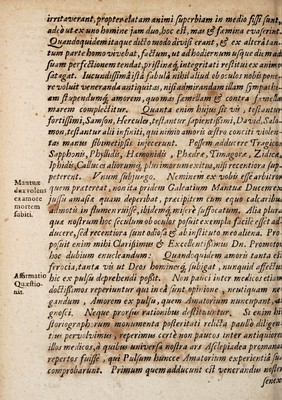 irritaverant, propter elatam animi superbiam in medio sissi sunt,
adeò ut ex uno homine jam duo, hoc est, mas & famina evaserint.
Quandoquidem itaque dicto modo divisi erant, & ex altera tan-
tum parte homo vivebat, factum, ut ad hodiernum usque diem ad
suam perfectionem tendat, pristinæq; integritati restitui ex animo
satagat. Jucundissimâ istâ fabulâ nihil aliud ob oculos nobis pone-
re voluit veneranda antiquitas, nisi admirandam illam sympathi-
am stupendumq; amorem, quo mas fœmellam & contra fœmella
marem complectitur. Quanta enim hujus sit vis, testantur
fortissimi, Samson, Hercules, testantur sapientissimi, David, Salo-
mon, testantur alii infiniti, qui nimio amoris œstro conciti violen-
tas manus sibimetipsis injecerunt. Possem adducere Tragicos
Sapphonis, Phyllidis, Hæmonidis, Phædræ, Timagoræ,
liphidis, Calluces aliorumq; plurimorum exitus, nisi recentiora sup-
peterent. Unum subjungo. Neminem ex vobis esse arbitror
quem prætereat, non ita pridem Galeatium Mantuæ Ducem ex
jussu amasiæ quam deperibat, præcipitem cum equo calcaribus
admotis in flumen ruisse, ibidemq; miserè suffocatum. Alia plura,
quæ nostrum hoc seculum ob oculos posuit exempla facilè esset ad-
ducere, sed recentiora sunt odiosa & ab instituto meo aliena. Pro-
posuit enim mihi Clarissimus & Excellentissimus Dn. Promotor
hoc dubium enucleandum: Quandoquidem amoris tanta est
ferocia, tanta vis ut Deos hominesq; subigat, nunquid affectus
hic ex pulsu deprehendi possit. Non pauci inter medicos etiam
doctissimos reperiuntur qui in eâ sunt opinione, neutiquam ne-
gandum, Amorem ex pulsu, quem Amatorium nuncupant, a-
gnosci. Neque prorsus rationibus destituuntur. Si enim hi-
storiographorum monumenta posteritati relicta paulò diligen-
tius pervolvimus, reperimus certè non paucos inter antiquiores
illos medicos, à quibus universa nostra ars Asclepiadea promanat
repertos fuisse, qui Pulsum huncce Amatorium experientiâ suâ
comprobarunt. Primum quem adducam est venerandus noster
senex
Mantuæ
dux volens
ex amore
mortem
subiit.
Affirmatio
Quæstio-
nis.